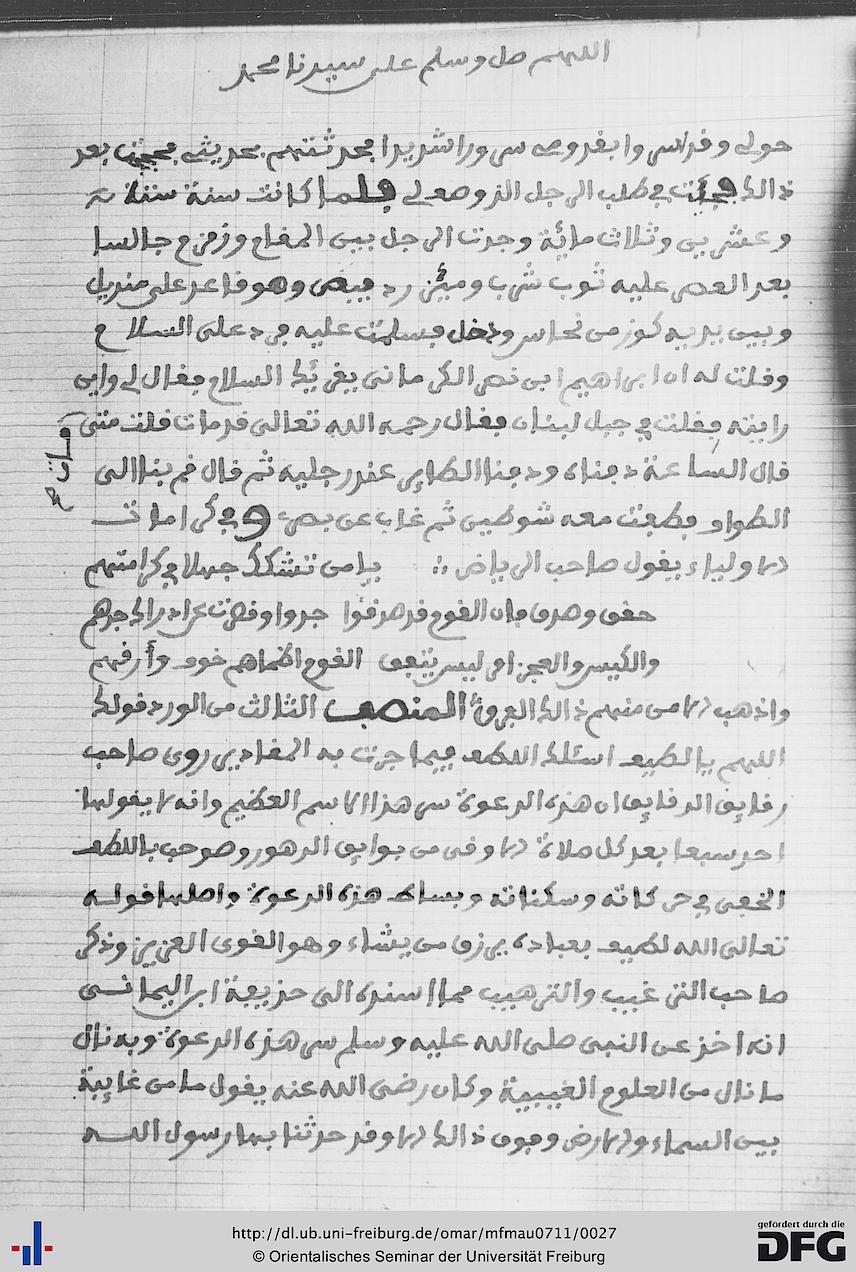 اللهم صل وسلم على سيدنا محمد
حولي وفد اسي وا بفدوصه سرورا شديدا فحدثتهم بحديثي فحججت بعد
ذالك فجئت في طلب الرجل الذ وصف لي فلما كانت سنة ستة
وعشرين وثلاث مائة وجدت الرجل بين المقام وزمزم جالسا
بعد العصر عليه ثوب شرب وميئزر دبيقي وهو قاعد على منديل
وبين يديه كوز من نحاس ودخل فسلمت عليه فرد على السلام
وقلت له ان ابراهيم ابن نصر الكرماني يقرئك السلام فقال لي واين
رايته فقلت في جبل لبنان فقال رحمه الله تعالى قد مات قلت متى
مات
قال الساعة دفناه ودفنا الطاير عند رجليه ثم قال قم بنا الى
الطواف فطفت معه شوطين ثم غاب عن بصري وفي كرامات
الاولياء يقول صاحب الرياض يا من تشكك جهلا في كرامتهم
حقق وصدق فان القوم قد صدقوا جدوا وقصرت عن ادراك جدهم
والكيس والعجز امر ليس يتفق القوم اظماهم خوف وأرقهم
واذهب الامن منهم ذالك الفرق المنصف الثالث من الورد قولك
اللهم يا لطيف اسئلك اللطف فيما جرت به المقادير روى صاحب
رقايق الدقايق ان هذه الدعوة سر هذا الاسم العظيم وانه لا يقولها
احد سبعا بعد كل صلاة الا وقى من بوايق الدهور وصوحب باللطف
الخفى في حركاته وسكناته وبساط هذه الدعوة واصلها قوله
تعالى الله لطيف بعباده يرزق من يشاء وهو القوى العزيز وذكر
صاحب الترغيب والترهيب مما اسنده الى حذيفة ابن اليمانى
انه اخذ عن النبى صلى الله عليه وسلم سر هذه الدعوة وبه نال
ما نال من العلوم الغيبية وكان رضى الله عنه يقول ما من غايبة
بين السماء والارض وفوق ذالك الا وقد حدثنا بها رسول الله
http://dl.ub.uni-freiburg.de/omar/mfmau0711/0027
© Orientalisches Seminar der Universität Freiburg
gefördert durch die
DFG